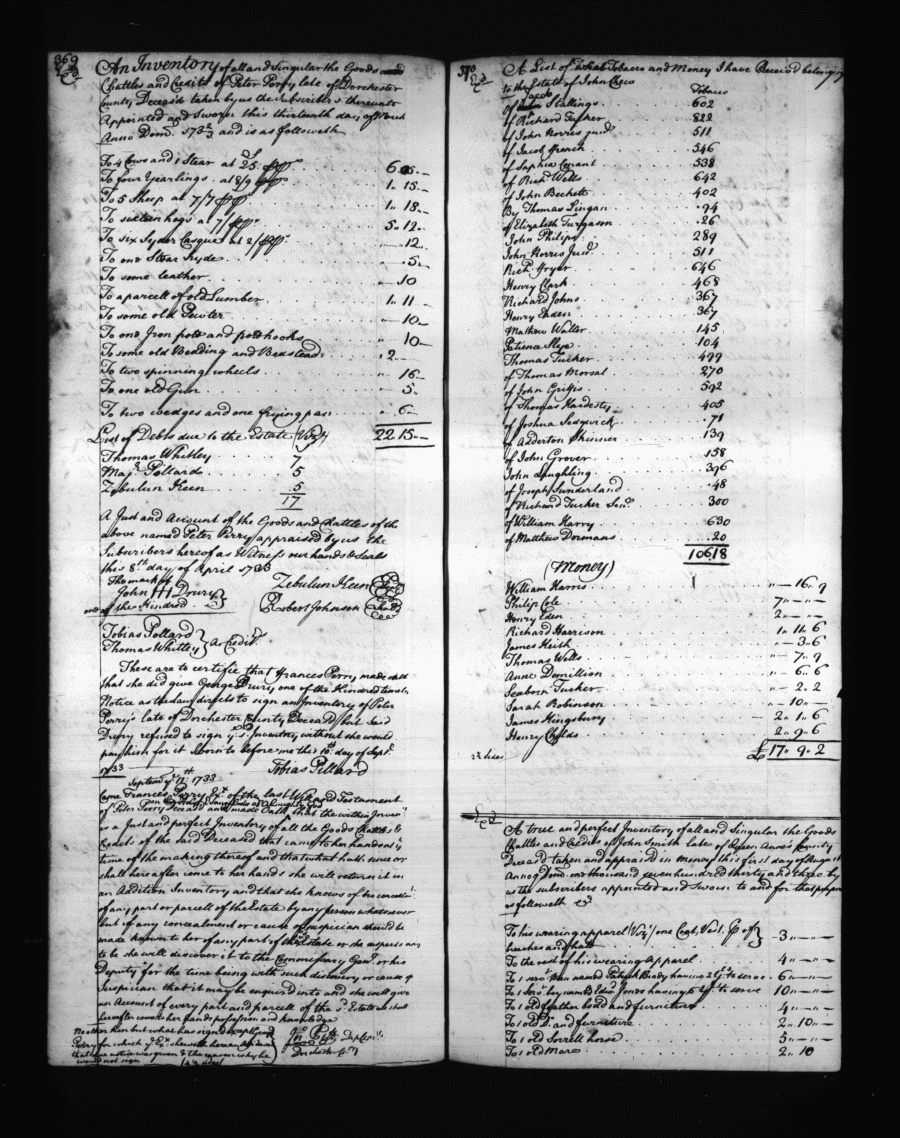 369
An Inventory of all and Singular the Goods and
Chattles and Credits of Peter Perry late of Dorchester
County Deceas'd taken by us the Subscribers thereunto
Appointed and Sworn this thirteenth day of March
Anno Dom. 173 2/3 and is as followeth
To 4 Cows and 1 Stear at 25
To four Yearlings at 8/9 1 " 15 "
To 5 Sheep at 7/7 1 " 18 "
To sixteen hogs at 7/ 5 " 12 "
To six Syder Casques at 2/ 12 "
To one Stear Hyde " 5 "
To some leather " 10
To a parcell of old Lumber 1 " 11 "
To some old Pewter " 10 "
To one Iron pott and pott hooks " 10 "
To some old Bedding and Bedstead " 2 "
To two spinning wheels " 16 "
To one old Gun " 5 "
To two wedges and one frying pan " 6 "
22 " 15 "
List of Debts due to the Estate (Vizt)
Thomas Whitley 7
Majr Pollard 5
Zebulun Keen 5
17
A Just and Account of the Goods and Chattles of the
above named Peter Perry appraised by us the
Subscribers hereof as Witness our hands & Seals
this 8th day of April 1733
The mark of
John H Drury
one of the Kindred
Zebulun Keen
Robert Johnson
Tobias Pollard
Thomas Whitley } as Credit
These are to certifie that Frances Perry made oath
that she did give George Drury one of the Kindred timely
Notice as the Law directs to sign an Inventory of Peter
Perry's late of Dorchester County Deceas'd but said
Drury refused to sign ye sd Inventory without she would
pay him for it Sworn to before me this 10th day of Septr
1733 Tobias Pollard
Septem ye 11th 1733
Came Frances Perry Ex of the last Will and Testament
of Peter Perry Deceas'd and made Oath that the within Inven
is a Just and perfect Inventory of all the Goods Chattles &
Credits of the said Deceased that came to her hands at ye
time of the making thereof and that what hath since or
shall hereafter come to her hands she will return it in
an Addition Inventory and that she knows of no concealt
of any part or parcell of the Estate by any person whatsoever
but if any concealment or cause of suspicion should be
made known to her of any part of the Estate or she suspects any
to be she will discover it to the Commissary Genl or his
Deputy for the time being with such discovery or cause of
Suspicion that it may be enquired into and she will give
an Account of every part and parcell of the sd Estate as shall
hereafter come to her hands possession and knowledge
370
A List of what Tobacco and Money I have Received belonging
to the Estate of John Chew
Tobacco
of Jacob Stallings 602
of Richard Tucker 822
of John Norris Junr 511
of Jacob French 546
of Sophia Conant 538
of Richd Wells 642
of John Beckett 402
By Thomas Lingan 94
of Elizabeth Furgason 26
John Philips 289
John Norris Junr 511
Richd Fryer 646
Henry Clark 468
Richard Johns 367
Henry Enden 367
Mathew Waller 145
Patience Slye 104
Thomas Tucker 499
of Thomas Morsal 270
of John Griffis 592
of Thomas Hardesty 405
of Joshua Sedgwick 71
of Adderton Skinner 139
of John Grover 158
John Laughling 396
of Joseph Sunderland 48
of Richard Tucker Senr 300
of William Harry 630
of Matthew Dormans 20
10618
(Money)
William Harris " 16 " 9
Philip Cole 7 " "
Henry Eden 2 " "
Richard Harrison 1 " 11 " 6
James Keith " 3 " 6
Thomas Wells " 7 " 9
Anne Dorrillion " 6 " 6
Seaborn Tucker " 2 " 2
Sarah Robinson " 10 "
James Kingsbury 2 " 1 " 6
Henry Childs 2 " 9 " 6
£ 17 " 9 " 2
2d Sides
A true and perfect Inventory of all and Singular the Goods
Chattles and Credits of John Smith late of Queen Anne's County
Deceas'd taken and appraised in money this first day of August
Anno Dom. one thousand seven hundred thirty and three by
us the subscribers appointed and sworn to and for that purpose
as followeth
To his wearing apparel (Vizt) one Coat, Vest, of
breeches and hatt 3 " "
To the rest of his wearing Apparel 4 " "
To 1 servt Man named Patrick Brady having 2 yrs to serve 6 " "
To 1 servt boy named Edwd Jones having 5 yrs to serve 10 " "
To 1 old feather bedd and furniture 4 " "
To 1 old Do and furniture 2 " 10 "
To 1 old Sorrell horse 5 " "
To 1 old Mare 2 " 10